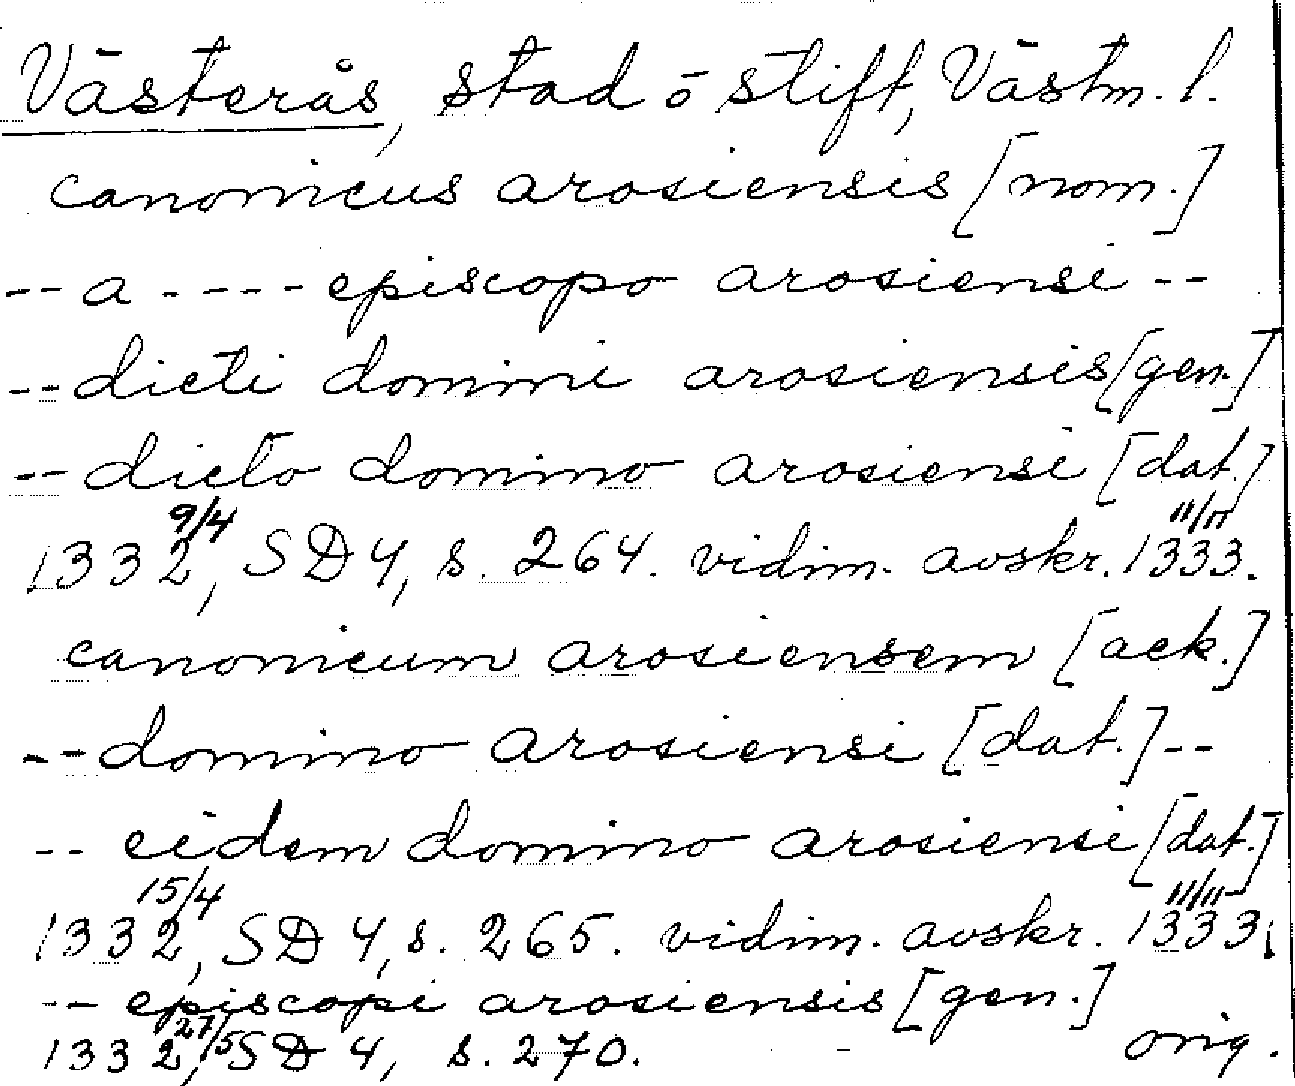 Västerås, stad ō stift, Västm. l.
canonicus arosiensis [nom.]
-- a ---- episcopo arosiensi --
-- dicti domini arosiensis [gen.]
-- dicto domino arosiensi [dat.]
1332 9/4, SD 4, s. 264. vidim. avskr. 1333 11/11.
canonicum arosiensem [ack.]
-- domino arosiensi [dat.] --
-- eidem domino arosiensi [dat.]
1332 15/4, SD 4, s. 265. vidim. avskr. 1333 11/11;
-- episcopi arosiensis [gen.]
1332 27/5, SD 4, s. 270. orig.